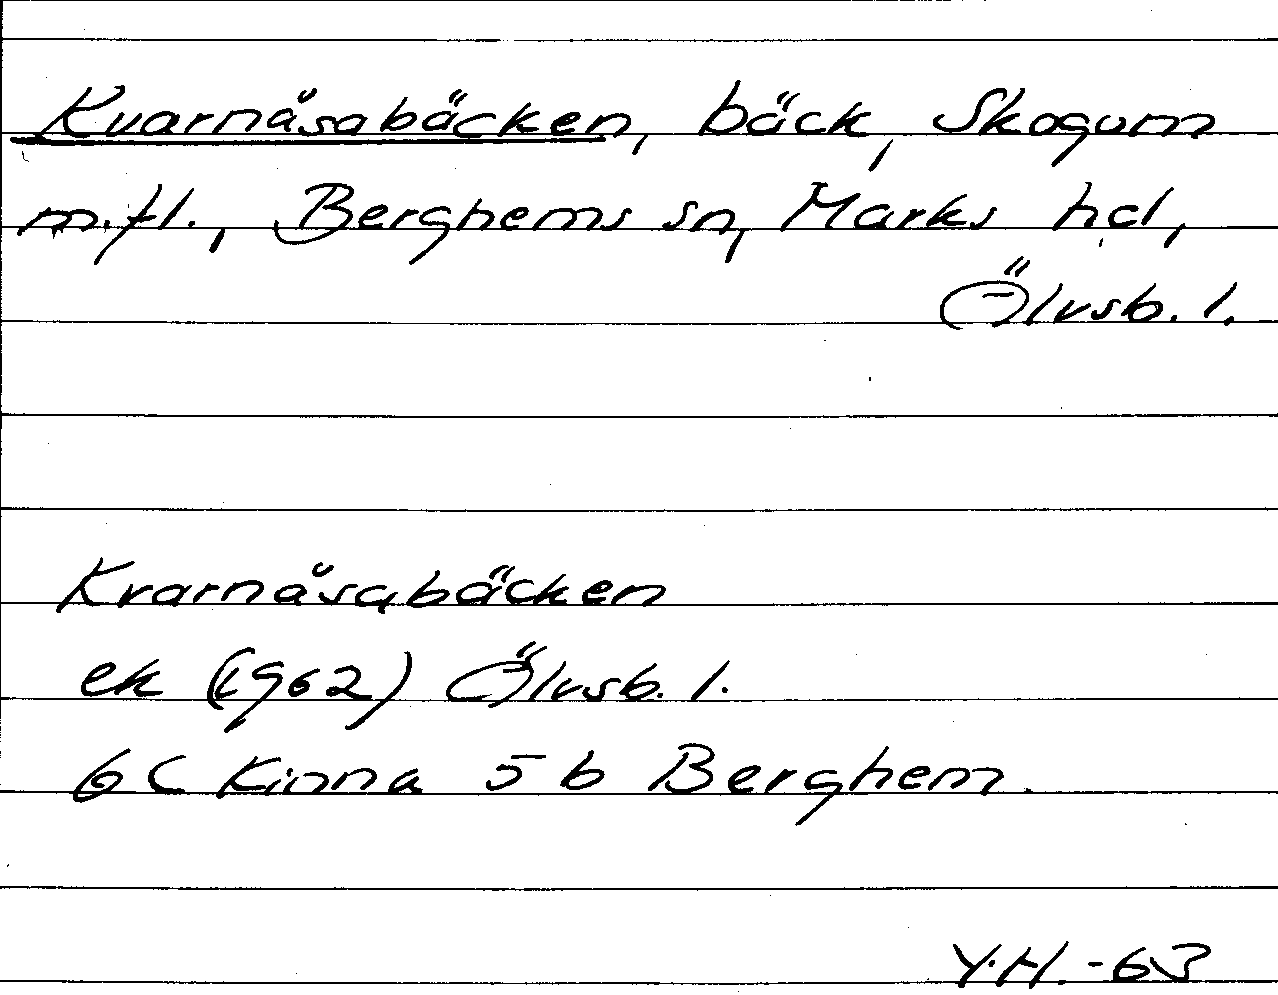 Kvarnåsabäcken, bäck, Skogum
m.fl., Berghems sn, Marks hd,
Älvsb. l.
Kvarnåsabäcken
ek (1962) Älvsb. l.
6C Kinna 5 b Berghem.
Y.H. -63